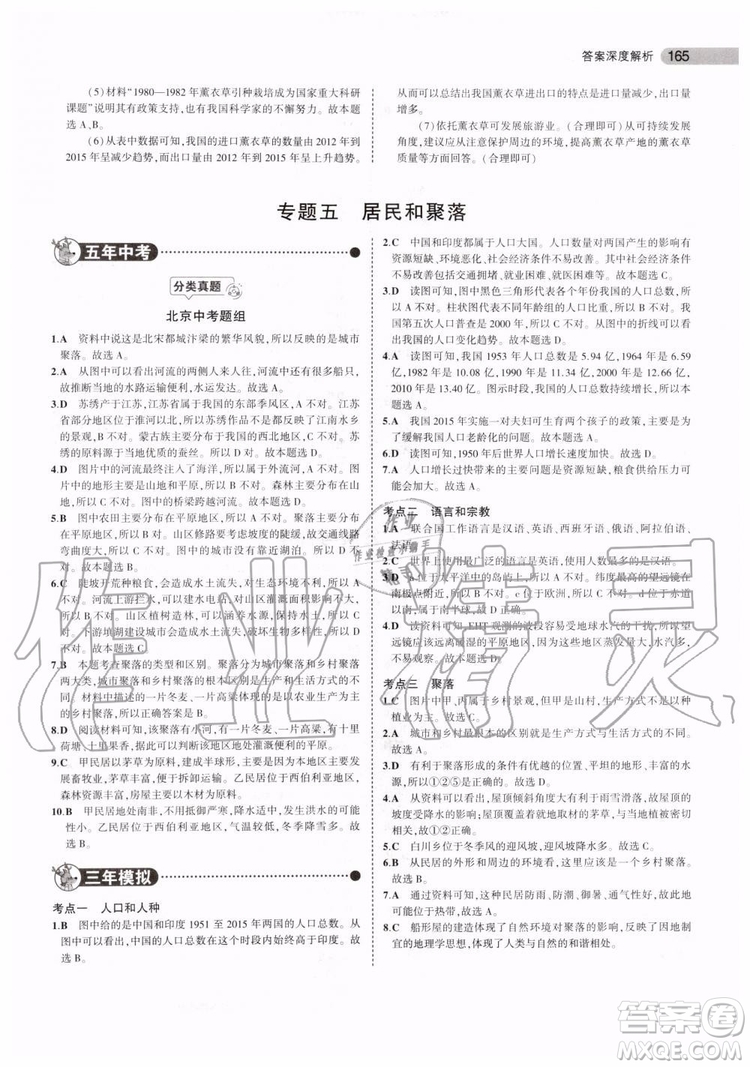 答案深度解析 165
(5)材料“1980—1982年薰衣草引种栽培成为国家重大科研
课题”说明其有政策支持,也有国科学家的不懈努力。故本题
选A、B。
(6)从表中数据可知,我国的进口薰衣草的数量由2012年到
2015年呈减少趋势,而出口量由2012年到2015年呈上升趋势。
从而可以总结出我国薰衣草进出口的特点是进口量减少,出口量
增多。
(7)依托薰衣草可发展旅游业。(合理即可)从可持续发展的
角度,建议应注意保护周边的环境,提高薰衣草产地的薰衣草
质量等方面回答。(合理即可)
专题五 居民和聚落
五年中考
分类真题
北京中考题组
1.A 资料中说这是北宋都城汴梁的繁华风貌,所以反映的是城市
聚落。故选A。
2.A 从图中可以看出河流的两侧人来人往,河流中还有很多船只,
故推断当地的水路运输便利、发达。故选A。
3.D 苏绣产于江苏,江苏位于我国的东部季风区,A不对。江苏
省部分地区位于淮河以南,所以B不对。苏绣作品多反映江南水乡
的景观,B不对。蒙古族主要分布于我国的西北地区,C不对。苏
绣的原料源于当地优质的蚕丝。所以本题选D。
4.D 图片中的河流最终注入了海洋,所以属于外流河,故A不
对。图片中反映的地形主要是山地和平原,B不对。森林主要分布
于山地地区,C不对。图片中的桥梁跨越河流。故本题选D。
5.B 图中农田主要分布在平原地区,A不对。聚落主要分布在沿
河的平原地区,所以C不对。山区修路要考虑坡度的陡缓,故交通线路
弯弯曲曲,所以B正确。城市附近没有湖泊,所以D不对。故本
题选B。
6.C 陡坡开荒种粮食,会造成水土流失,而且对山区灌溉面积影响
不大。河流上游拦河,可以建水电站,对山区灌溉面积影响
不大。山区植树造林,可以涵养水源,保持水土,
下游填湖建设城市会造成水患,破坏生物多样性。故本
题选C。
7.B 本题考查聚落的类型和区别。聚落分为城市聚落和乡村聚落
两大类,城市聚落的居民以从事非农业活动为主,乡村聚落的
材料中描述的一片冬麦、一片高粱景观显示的是以农业生产为主
的乡村,所以正确答案是B。故选B。
8.D 阅读材料可知,该地区有小河,有一片冬麦,一片高粱,十里
荷塘,十里果香,由此可以判断该地区地处灌溉便利的平原地区。
9.C 甲民居以茅草为原料,建造成半球形,有利于通风,主要发展
畜牧业,茅草丰富,便于拆卸运输。乙民居位于西伯利亚地区,
森林资源丰富,房屋主要以木材为原料。
10.B 甲民居地处南非,不用抵御严寒,降水主要,发生洪水的可能
性小。乙民居位于西伯利亚地区,气温较低,冬季严寒。故选B。
三年模拟
考点一 人口和人种
1.B 图中给的是中国和印度1951至2015年两国的人口总数。从
图中可以看出,中国的人口总数在这一时间内始终高于印度。故
选B。
2.C 中国和印度都属于人口大国。人口数量对两国产生的影响有
资源短缺、环境恶化、社会经济条件不易改善。其中社会经济条件
不易改善包括交通拥堵、就业困难、居住条件差等。故选C。
3.D 读图可知,图中黑色三角形代表各个年代我国的人口总数,所
以A不对。柱状图代表不同年龄组的人口比重,所以B不对。我
国第五次人口普查是2000年,所以C不对。图中的折线可以看出
我国人口变化趋势。故选D。
4.A 读图可知我国1953年人口总数是5.94亿,1964年是6.59
亿,1982年是10.08亿,1990年是11.34亿,2000年是12.66亿,
2010年是13.40亿。图示时段,我国人口总数持续增长。故
选A。
5.A 我国2015年实施一对夫妇可生育两个孩子的政策,主要是为
了缓解我国人口老龄化的问题。故选A。
6.D 读图可知,1950年后世界人口增长速度加快。故选D。
7.A 人口增长过快带来的主要问题是资源短缺,粮食供应不足。
故选A。
考点二 语言和宗教
1.A 联合国工作语言是汉语、英语、西班牙语、俄语、阿拉伯语、
法语。
2.C 世界上使用最广泛的语言是英语,使用人数最多的是汉语。
3.D a位于太平洋中的岛屿上,所以A不对。纬度最高的望远镜在
南极点附近,所以B不对。c位于欧洲,所以C不对。d位于赤道
以南,所以D正确。
4.D 读资料可知,EHT观测的波段容易受地球水汽的干扰,所以望
远镜应远离潮湿的平原地区,因为这些地区蒸发量大,水汽多,
不易观测。故选D。
考点三 聚落
1.C 图片中甲、丙属于乡村景观,但甲是山村,所以丙村的主体是以
种植业为主。故选C。
2.A 城市和乡村最根本的区别就是生产方式与生活方式的不同。
故选A。
3.D 有利于聚落形成的条件有优越的地理位置、平坦的地形、
丰富的水源等,所以①②⑤正确。故选D。
4.A 从资料可以看出,屋顶倾斜角度大有利于雨雪滑落,故屋顶
的坡度大是为了适应多雨雪的环境。屋顶覆盖的茅草是就地取
材,故①②正确。故选A。
5.C 白川乡房屋冬季的迎风坡、夏季的迎风坡,故选C。
6.B 从民居的外形和周边的环境看,该民居主要是适应湿热的环
境。故选B。
7.A 通过资料可知,该民居有防雨、防潮、防御、通风、就地取材的
功能,便于载草。故选A。
8.C 船形屋的建造体现了自然环境对聚落的影响,反映了因地制
宜的地理学思想,体现了人类与自然的和谐相处。
作业精灵
答案圈
MXQE.COM